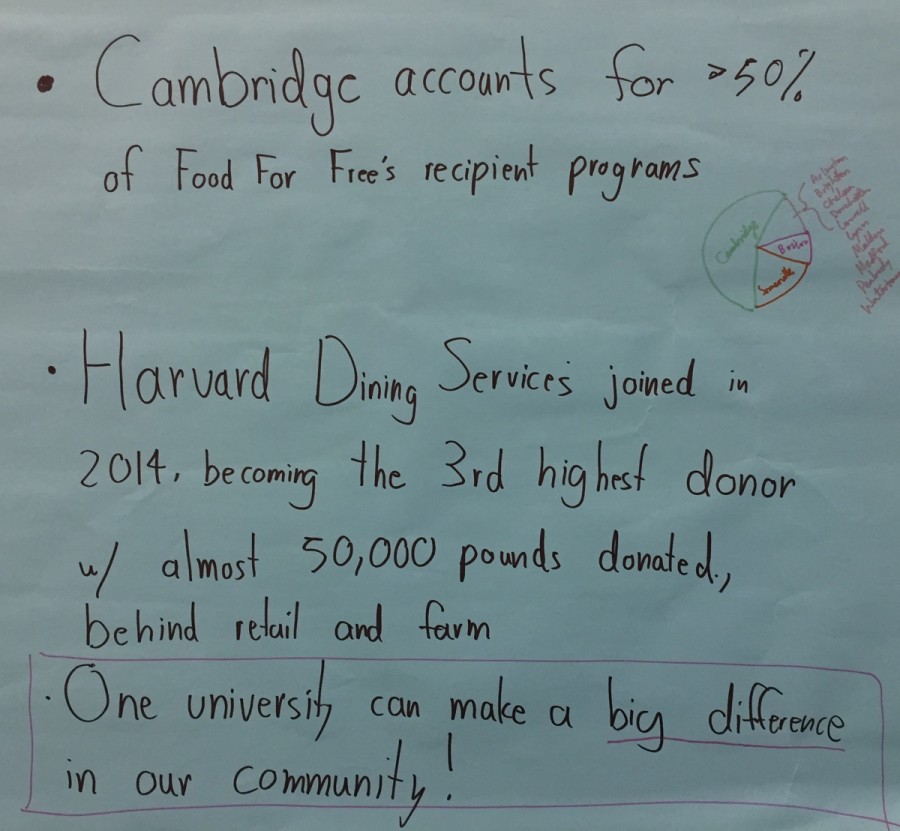 • Cambridge accounts for >50%
of Food For Free's recipient programs
Arlington
Brighton
Chelsea
Dorchester
Lowell
Lynn
Malden
Medford
Peabody
Watertown
Cambridge
Boston
Somerville
• Harvard Dining Services joined in
2014, becoming the 3rd highest donor
w/ almost 50,000 pounds donated.,
behind retail and farm
• One university can make a big difference
in our community!